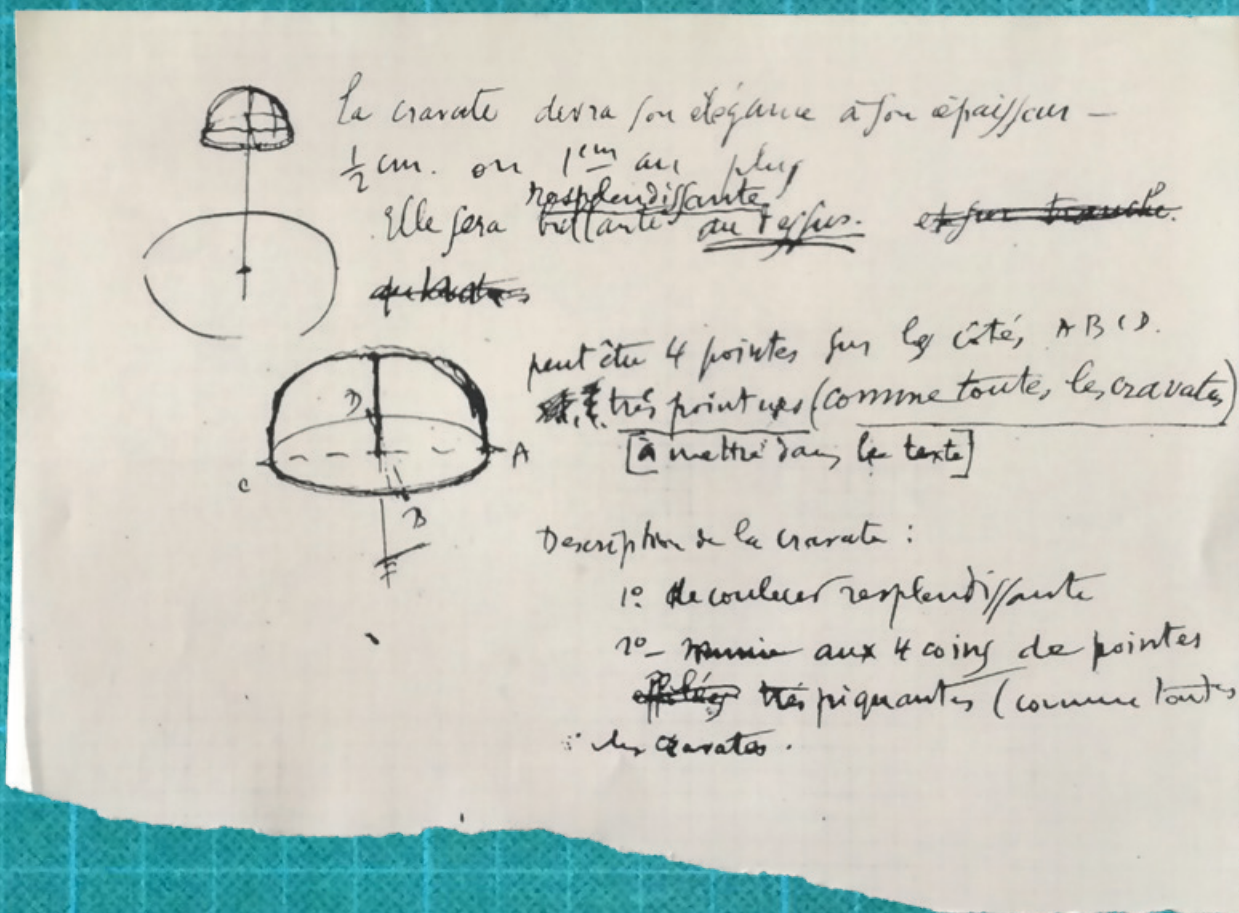 La cravate devra son élégance à son épaisseur —
1/2 cm. ou 1 cm au plus
resplendissante
Elle sera brillante au dessus. et sur tranche.
peut être 4 pointes sur les côtés A B C D.
très pointues (comme toutes les cravates)
[à mettre dans le texte]
D
A
C
B
Description de la cravate :
1º de couleur resplendissante
2º – munie aux 4 coins de pointes
effilées très piquantes (comme toutes
les cravates.